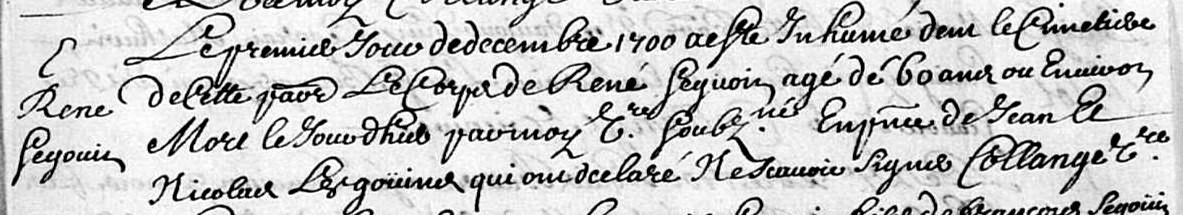 Le premier Jour de decembre 1700 a esté Inhumé dans le Cimetiere
René de Cette parr Le Corps de René Segouin agé de 60 ans ou Environ
Segouin Mort le Jour d'hier par moy C.re soubz.né En pñce de Jean Et
Nicolas Les goüins qui ont declaré Ne scavoir signer Collange C.re